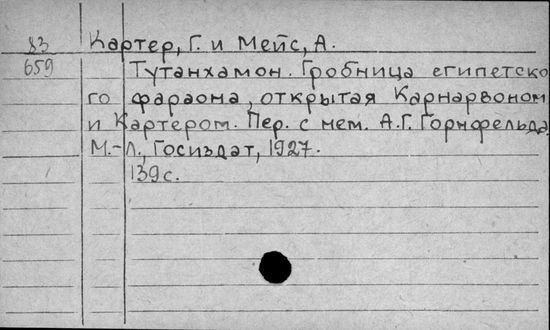 83 Картер, Г. и Мейс, А.
659 Тутанхамон. Гробница египетско
го фараона, открытая Карнарвоном
и Картером. Пер. с нем. А.Г. Горнфельда.
М.-Л., Госиздат, 1927.
139с.